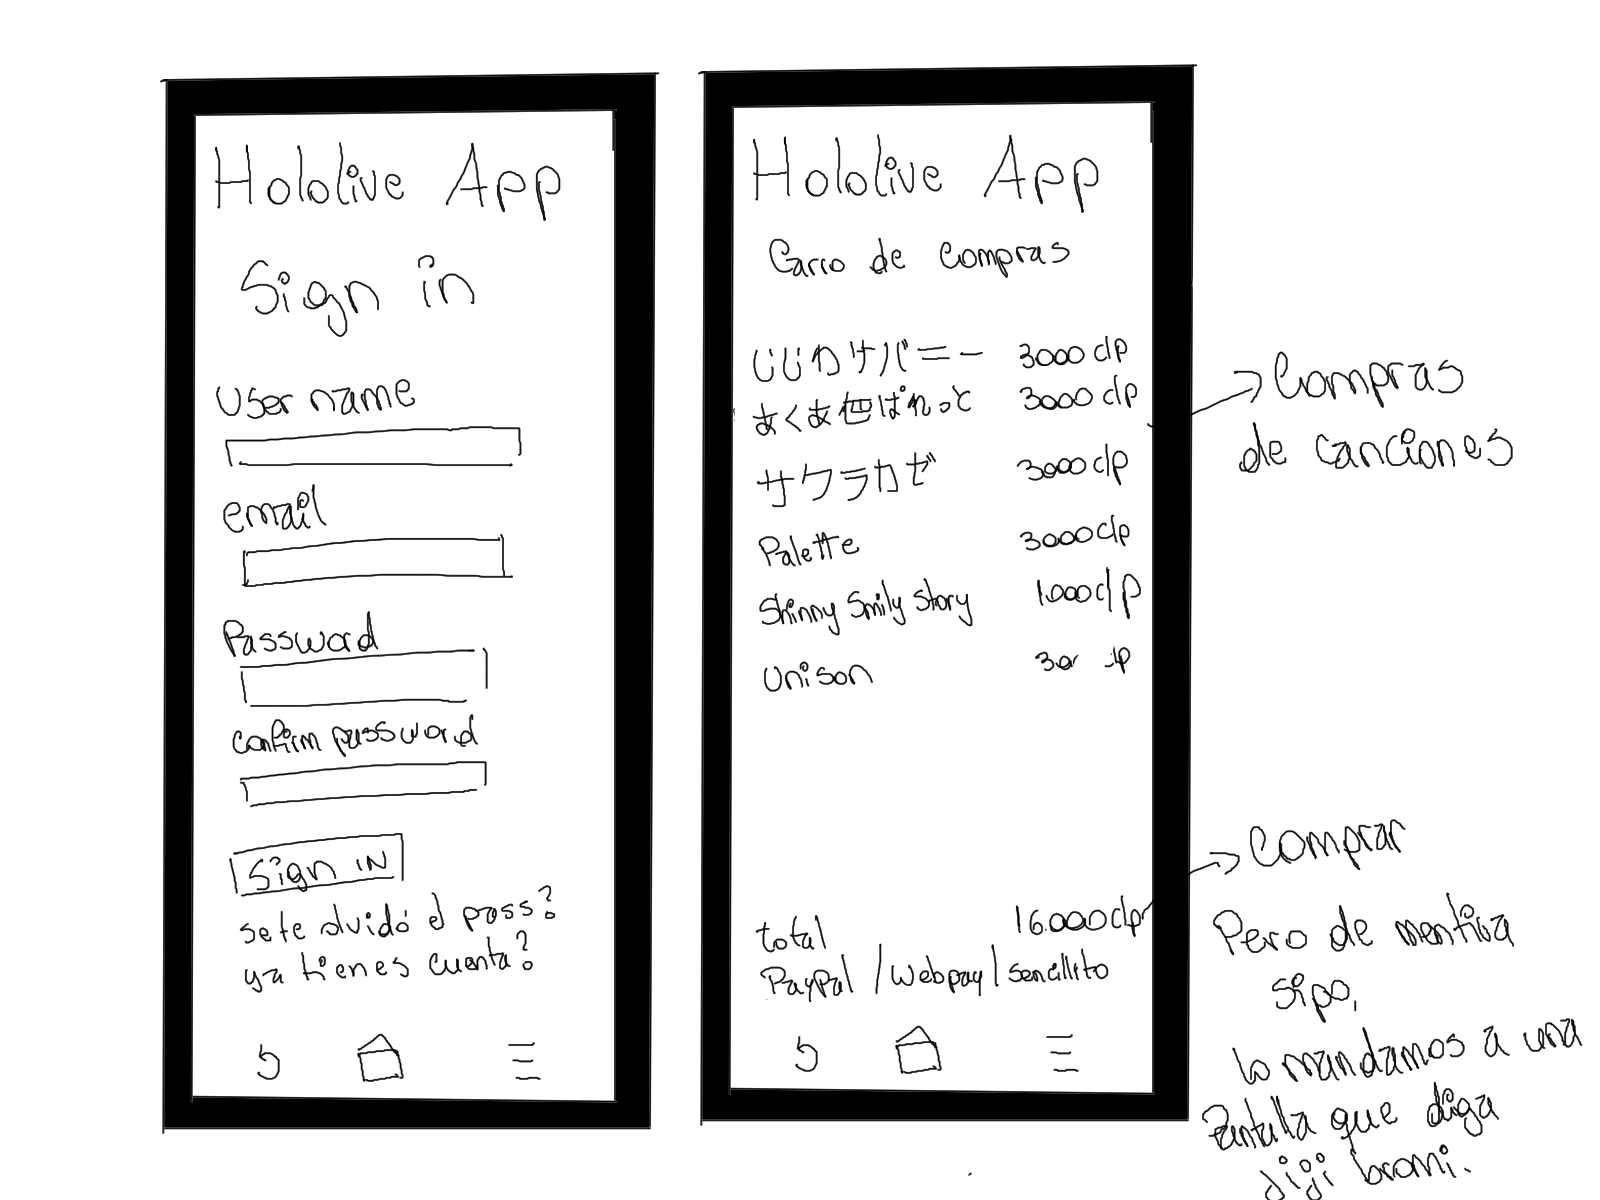 Hololive App
Sign in
User name
email
Password
confirm password
Sign IN
se te olvidó el pass?
ya tienes cuenta?
Hololive App
Carro de compras
じじわサバニー 3000 clp
あくあ色ぱれっと 3000 clp
サクラカゼ 3000 clp
Palette 3000 clp
Shinny Smily Story 1.000 clp
Unison
total 16.000 clp
PayPal / Webpay / sencillito
Compras
de canciones
Comprar
Pero de mentira
sipo,
lo mandamos a una
Pantalla que diga
jiji bromi.